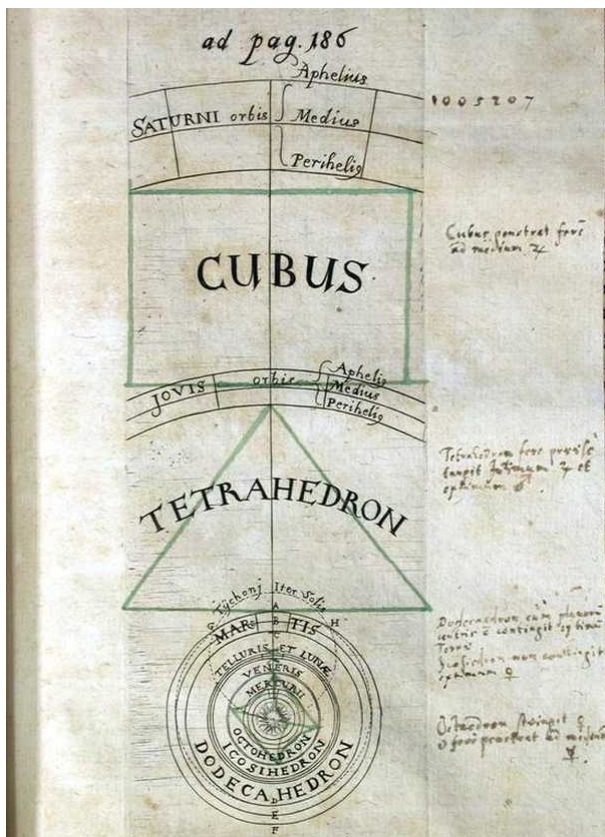 ad pag. 186
Aphelius
SATURNI orbis Medius
Perihelig
1005207
Cubus penetrat fere
ad medium ♃
CUBUS
Aphelig
JOVIS orbis Medius
Perihelig
Tetrahedron fere
tangit ♃ et
TETRAHEDRON
Tychonis Iter Solis
A
G B H
MARTIS
C
TELLURIS ET LUNÆ
VENERIS
MERCURII
OCTOHEDRON
ICOSIHEDRON
DODECAHEDRON
D
E
F
Dodecaedron cum
contingit
Terræ
Icosiedron non contingit
♀
Octaedron stringit ♀
fere penetrat ad medium
☿